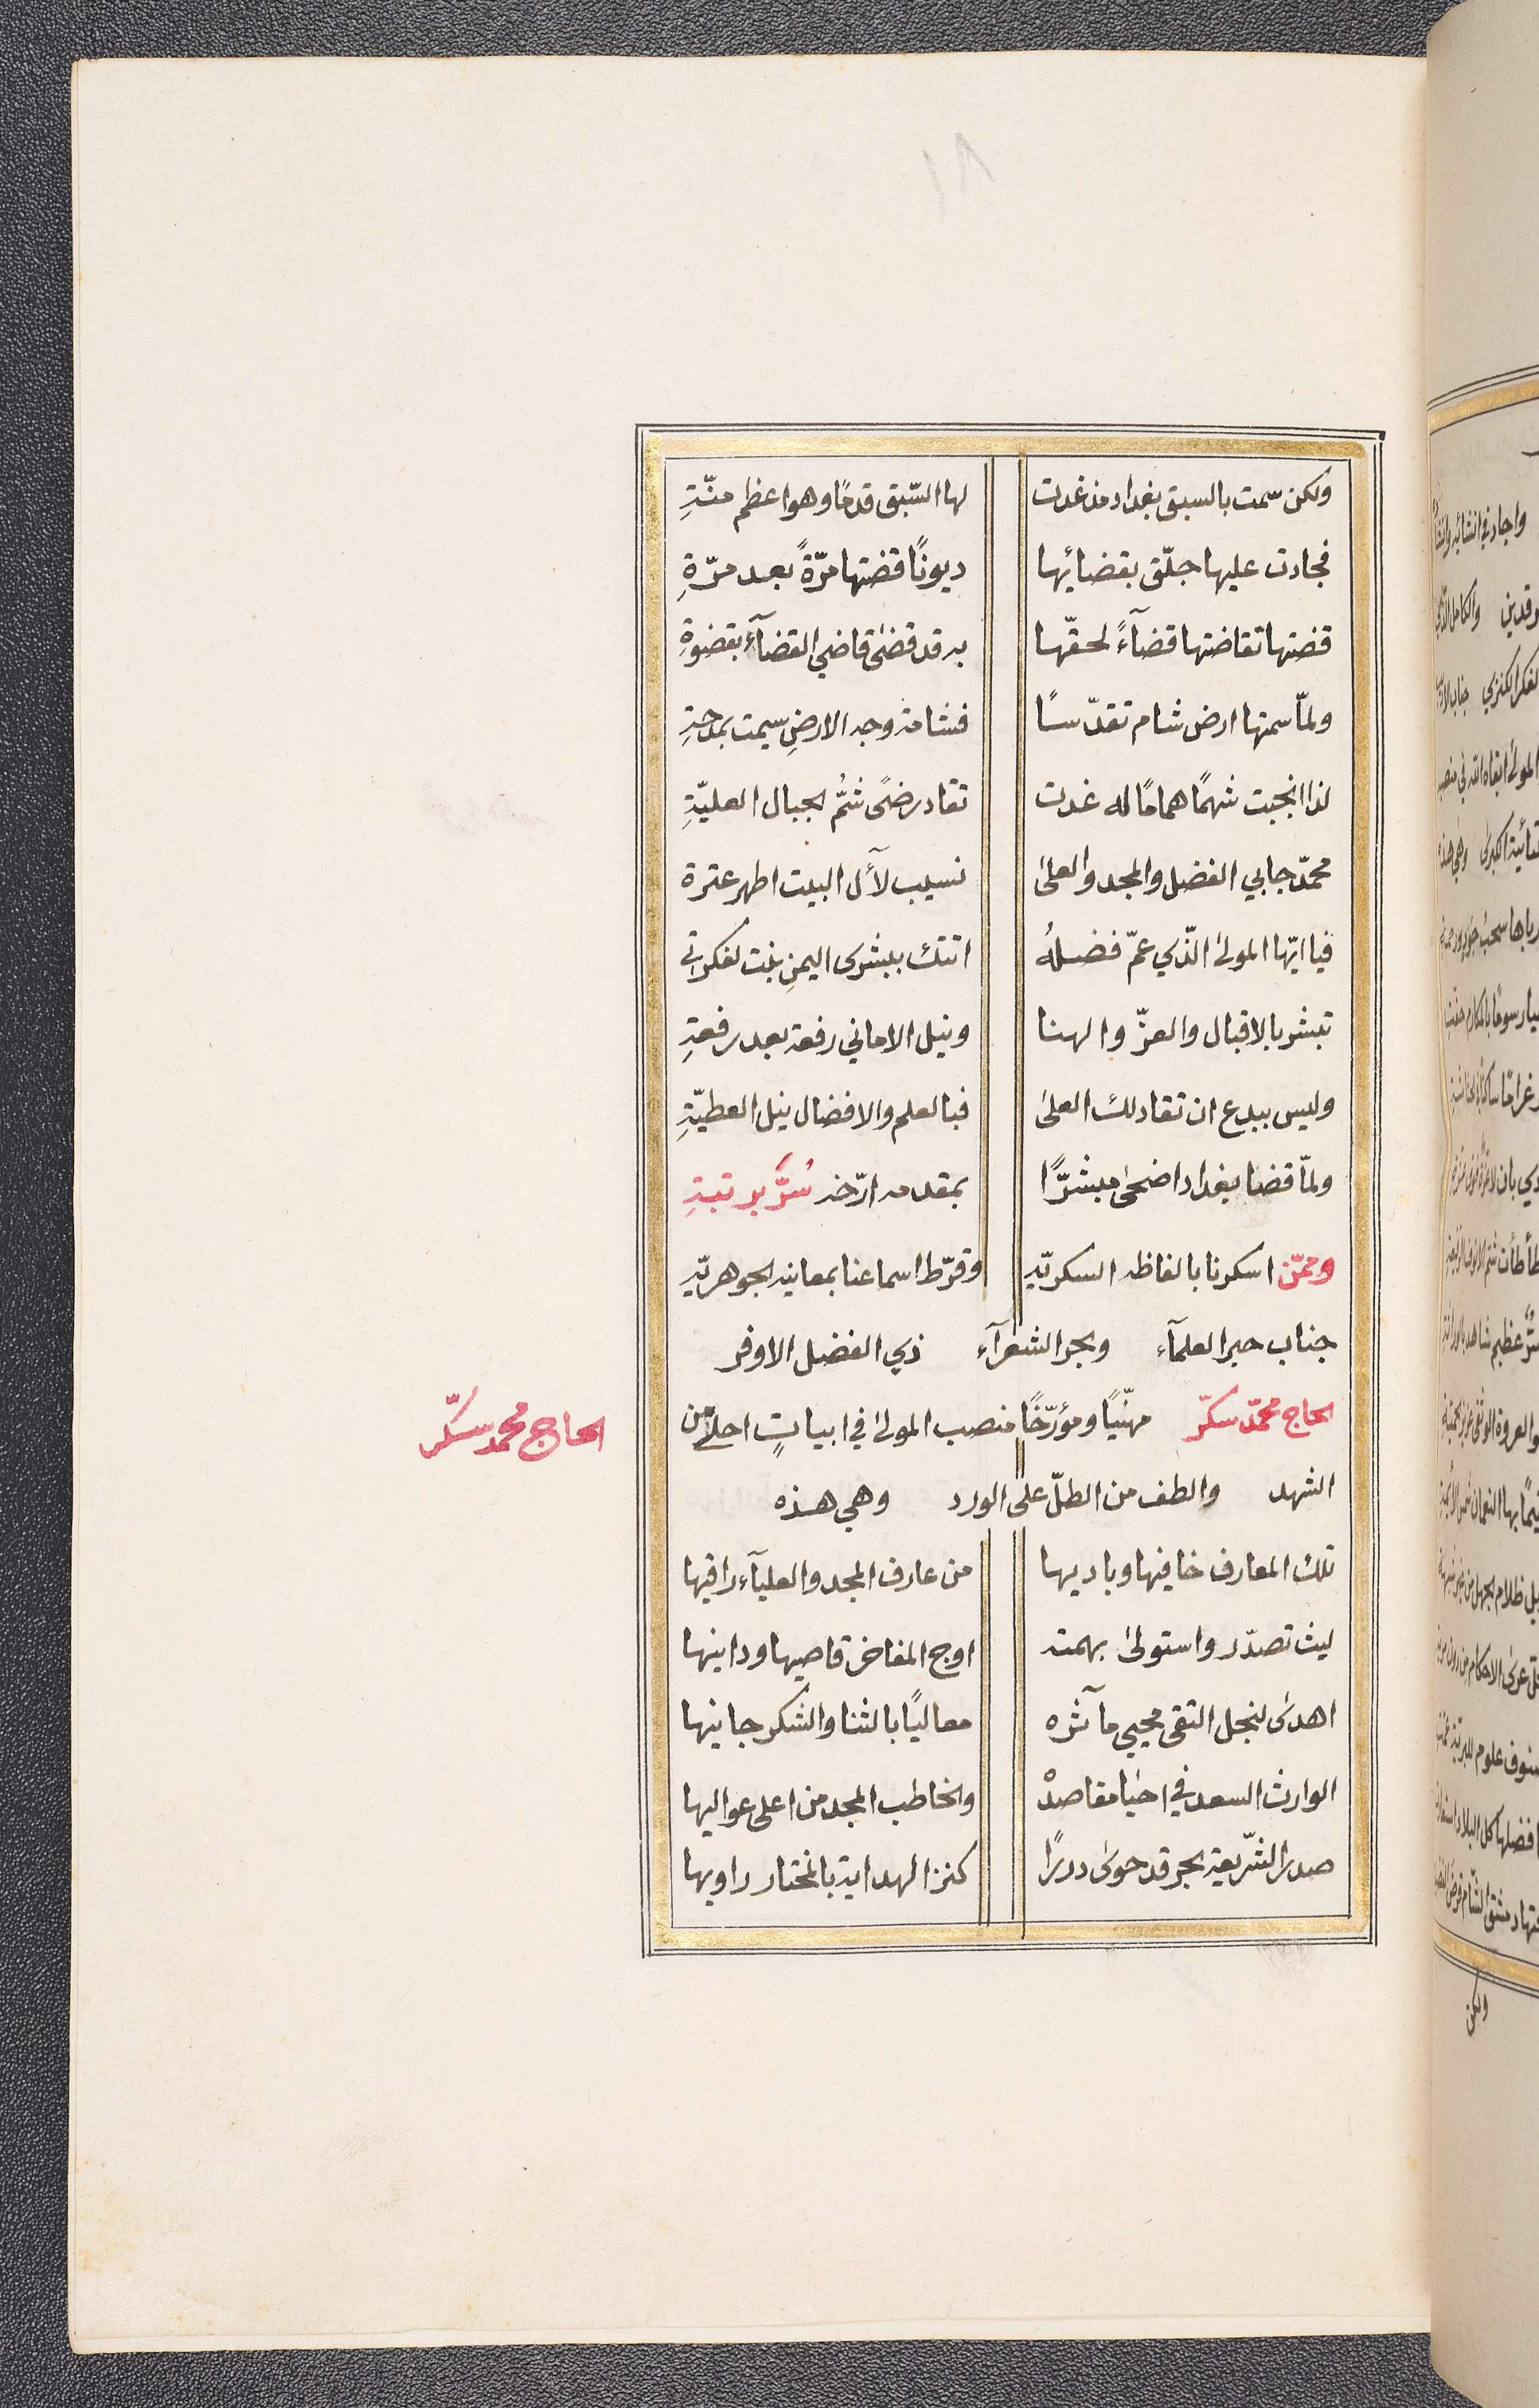 ولكن سمت بالسبق بغداد مذ غدت لها السّبق قدمًا وهو اعظم منّةِ
فجادت عليها جلّق بقضائها ديونًا قضتها مرّةً بعد مرّةِ
قضتها تقاضتها قضآءً لحقّها به قد قضى قاضي القضآء بقضوةِ
ولمّا سمتها ارض شام تقدّسًا فشامة وجه الارضِ سيمت بمدحةِ
لذا انجبت شهمًا همامًا له غدت تقاد رضىً شمُّ الجبال العليّةِ
محمّد جابي الفضل والمجد والعلى نسيب لآل البيت اطهر عترة
فيا ايّها المولى الّذي عمّ فضلُه اتتك ببشرى اليمنِ بنت لفكرتي
تبشر بالاقبال والعزّ والهنا ونيل الاماني رفعة بعد رفعةِ
وليس ببدع ان تقاد لك العلى فبالعلم والافضال نيل العطيّةِ
ولمّا قضا بغداد اضحى مبشرًّا بمقدمه ارّخه سُرَّ برتبةِ
وممّن اسكرنا بالفاظه السكريّه وقرّط اسماعنا بمعانيه الجوهريّه
جناب حبر العلمآء وبحر الشعرآء ذي الفضل الاوفر
الحاج محمّد سكّر مهنّيًا ومؤرّخًا منصب المولى في ابياتٍ احلى من
الحاج محمد سكّر
الشهد والطف من الطلّ على الورد وهي هذه
تلك المعارف خافيها وباديها من عارف المجد والعليآء راقيها
ليث تصدّر واستولى بهمته اوج المفاخر قاصيها ودانيها
اهدى لنجل التقى محيي مآثره معاليًا بالثنا والشكر جانيها
الوارث السعد في احيا مقاصدهْ والخاطب المجد من اعلى عواليها
صدر الشّريعة بحر قد حوى دررًا كنز الهداية بالمختار راويها
ولكن